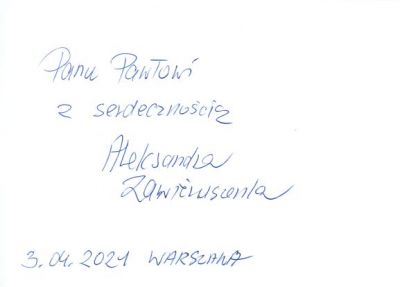 Panu Pawłowi
z serdecznością
Aleksandra
Zawieruszanka
3.04.2021 WARSZAWA